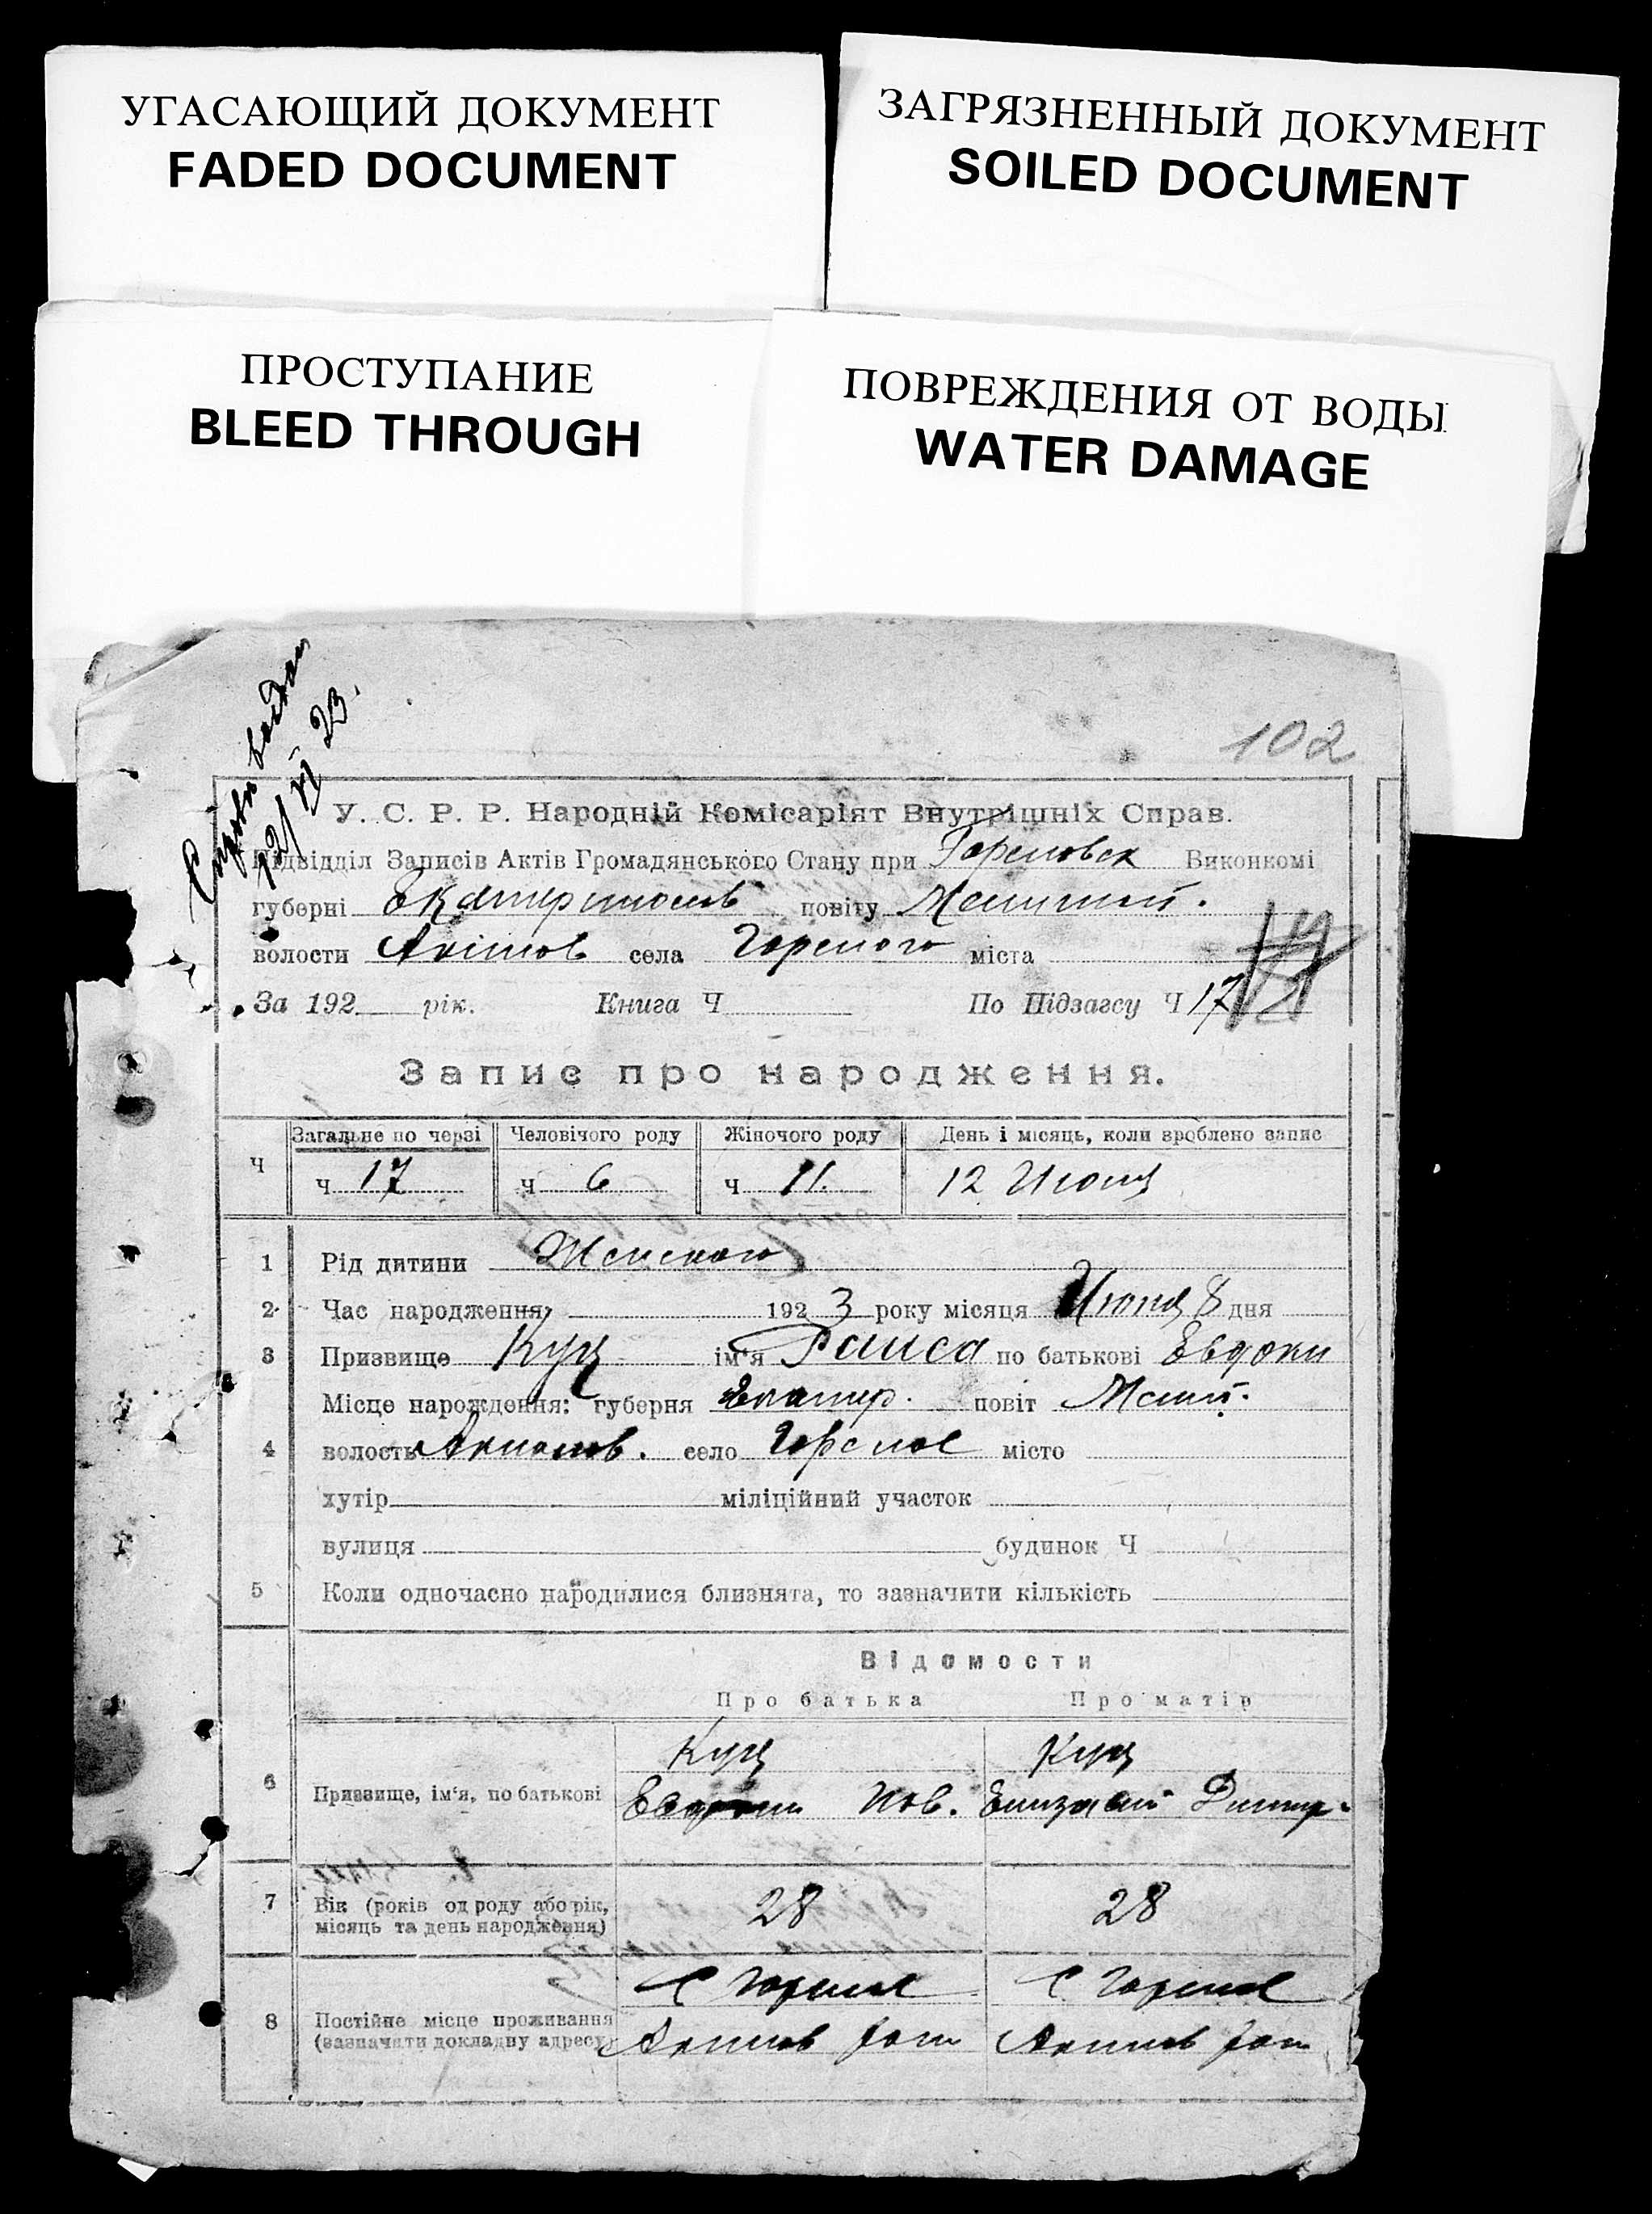 УГАСАЮЩИЙ ДОКУМЕНТ
FADED DOCUMENT
ЗАГРЯЗНЕННЫЙ ДОКУМЕНТ
SOILED DOCUMENT
ПРОСТУПАНИЕ
BLEED THROUGH
ПОВРЕЖДЕНИЯ ОТ ВОДЫ
WATER DAMAGE
12/VI 23.
102
У. С. Р. Р. Народній Комісаріят Внутрішніх Справ.
Підвідділ Записів Актів Громадянського Стану при Гореловск Виконкомі
губерні Екатеринослов повіту Мелитоп.
волости Акімов села Горелого міста
За 192 рік. Книга Ч По Підзагсу Ч 17
Запис про народження.
Загальне по черзі Человічого роду Жіночого роду День і місяць, коли зроблено запис
Ч ч 17 ч 6 ч 11. 12 Июня
1 Рід дитини Женского
2 Час народження 1923 року місяця Июня 8 дня
3 Призвище Куц ім'я Раиса по батькові Евдоки
Місце народження: губерня Екатер. повіт Мелит.
4 волость Акимов. село Горелое місто
хутір міліційний участок
вулиця будинок Ч
5 Коли одночасно народилися близнята, то зазначити кількість
Відомости
Про батька Про матір
Куц Куц
6 Призвище, ім'я, по батькові Евдоким Иов. Елизавет Димитр.
7 Вік (років од роду або рік,
місяць та день народження) 28 28
С Горелое С Горелое
8 Постійне місце проживання
(зазначити докладну адресу) Акимов Акимов